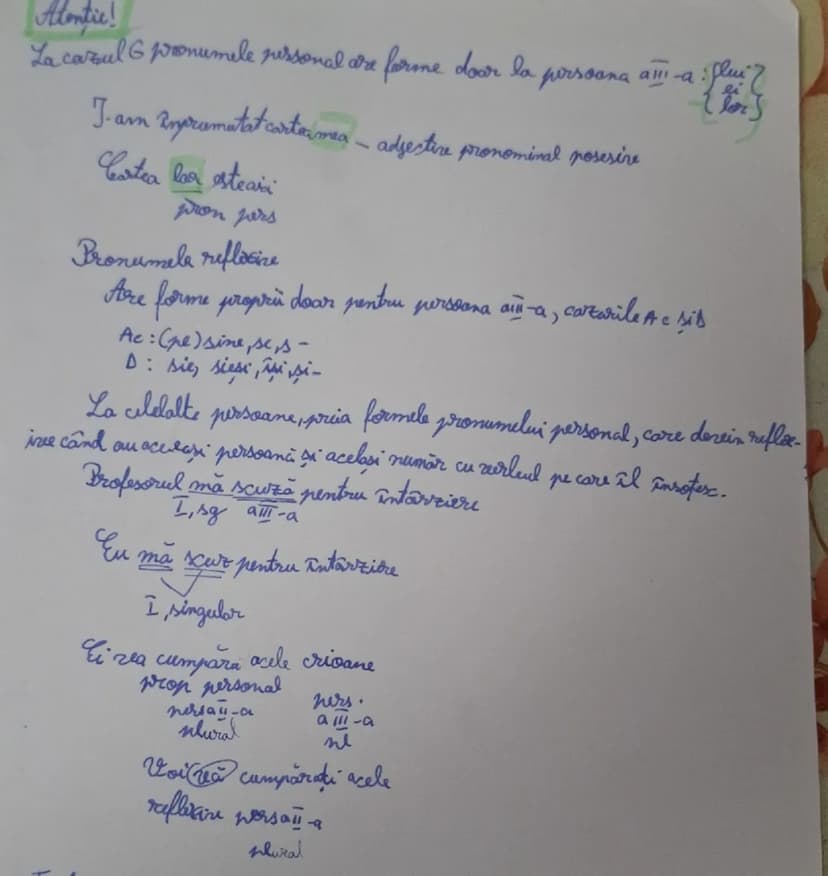 Atenție!
La cazul G pronumele personal are forme doar la persoana a III-a : { lui }
ei
{ lor }
I-am împrumutat cartea mea – adjective pronominal posesive
Cartea lor este aici
pron pers
Pronumele reflexive
Are forme proprii doar pentru persoana a III-a, cazurile Ac și D
Ac : (pe) sine, se, s-
D : sie, sieși, își, și-
La celelalte persoane, preia formele pronumelui personal, care devin reflex-
ive când au aceeași persoană și același număr cu verbul pe care îl însoțesc.
Profesorul mă scuză pentru întârziere
I, sg a III-a
Eu mă scuz pentru întârziere
I, singular
Ei vă cumpără acele crioane
pron personal pers.
pers a II-a a III-a
plural pl
Voi vă cumpărați acele
reflexive pers a II-a
plural